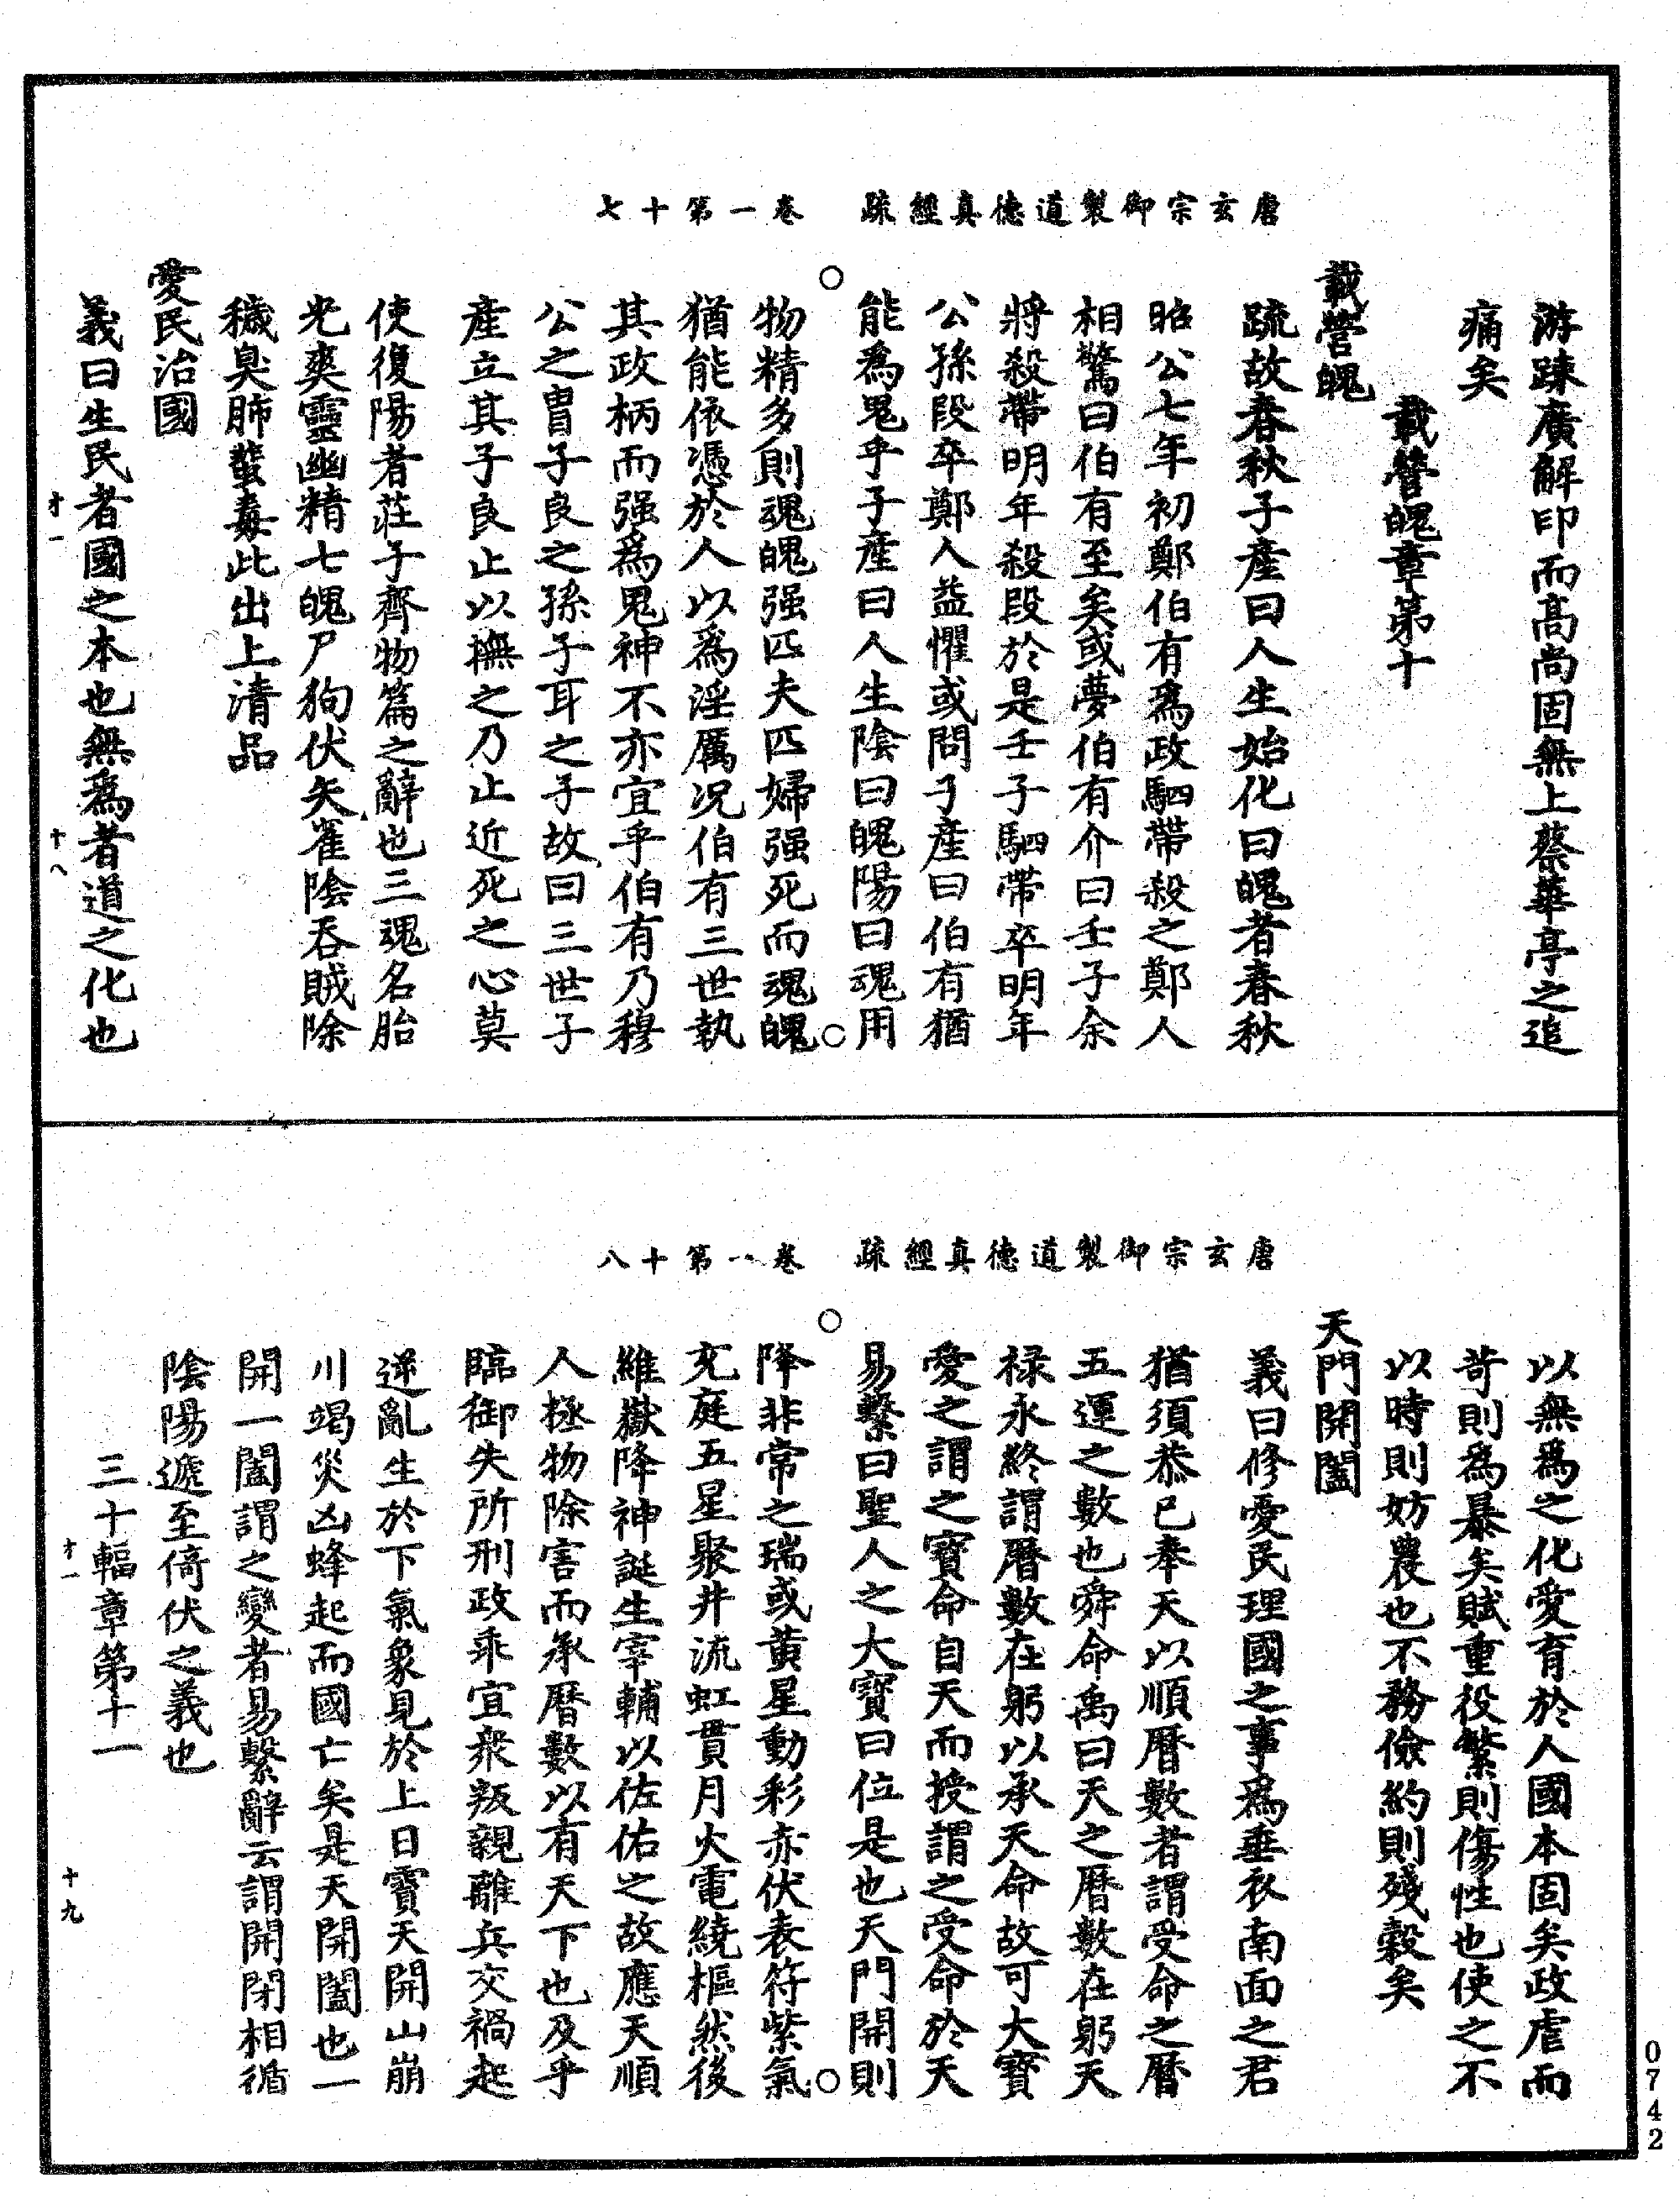 唐玄宗御製道德真經疏　卷一第十七
游踈廣解印而高尚固無上蔡華亭之追
痛矣
載營魄章第十
載營魄
疏故春秋子產曰人生始化曰魄者春秋
昭公七年初鄭伯有為政駟帶殺之鄭人
相驚曰伯有至矣或夢伯有介曰壬子余
將殺帶明年殺段於是壬子駟帶卒明年
公孫段卒鄭人益懼或問子產曰伯有猶
能為鬼乎子產曰人生陰曰魄陽曰魂用
物精多則魂魄强匹夫匹婦强死而魂魄
猶能依憑於人以為淫厲况伯有三世執
其政柄而强為鬼神不亦宜乎伯有乃穆
公之胄子良之孫子耳之子故曰三世子
產立其子良止以撫之乃止近死之心莫
使復陽者莊子齊物篇之辭也三魂名胎
光爽靈幽精七魄尸狗伏矢雀陰吞賊除
穢臭肺蜚毒此出上清品
愛民治國
義曰生民者國之本也無為者道之化也
才一　十八
唐玄宗御製道德真經疏　卷一第十八
以無為之化愛育於人國本固矣政虐而
苛則為暴矣賦重役繁則傷性也使之不
以時則妨農也不務儉約則殘穀矣
天門開闔
義曰修愛民理國之事為垂衣南面之君
猶須恭己奉天以順曆數者謂受命之曆
五運之數也舜命禹曰天之曆數在躬天
祿永終謂曆數在躬以承天命故可大寶
愛之謂之寶命自天而授謂之受命於天
易繫曰聖人之大寶曰位是也天門開則
降非常之瑞或黃星動彩赤伏表符紫氣
充庭五星聚井流虹貫月火電繞樞然後
維嶽降神誕生宰輔以佐佑之故應天順
人拯物除害而承曆數以有天下也及乎
臨御失所刑政乖宜衆叛親離兵交禍起
逆亂生於下氣象見於上日實天開山崩
川竭災凶蜂起而國亡矣是天開闔也一
開一闔謂之變者易繫辭云謂開閉相循
陰陽遞至倚伏之義也
三十輻章第十一
才一　十九
0742